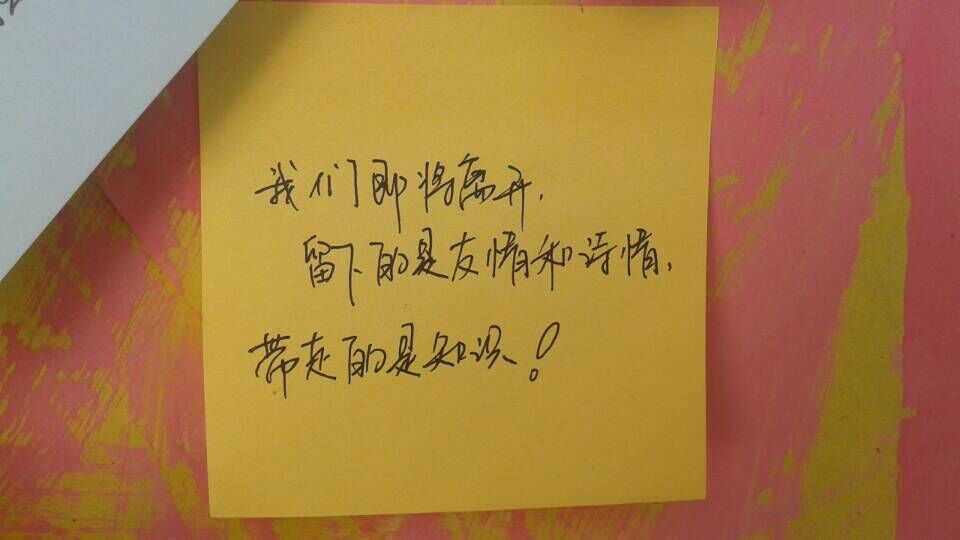 我们即将离开,
留下的是友情和诗情,
带走的是知识!